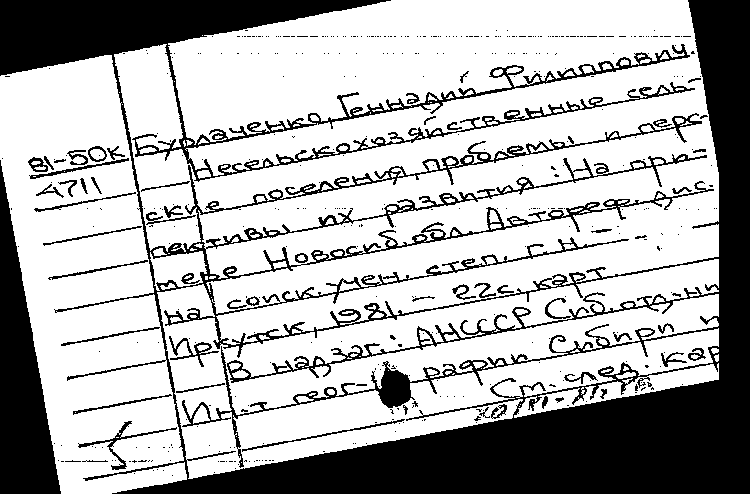 Бурлаченко, Геннадий Филиппович.
81-50к Несельскохозяйственные сель-
4711 ские поселения, проблемы и перс-
пективы их развития : На при-
мере Новосиб. обл. Автореф. дис.
на соиск. учен. степ. г. н. -
Иркутск, 1981. - 22с., карт.
В надзаг.: АН СССР Сиб. отд-ни
Ин-т геог- рафии Сибири и
См. след. кар